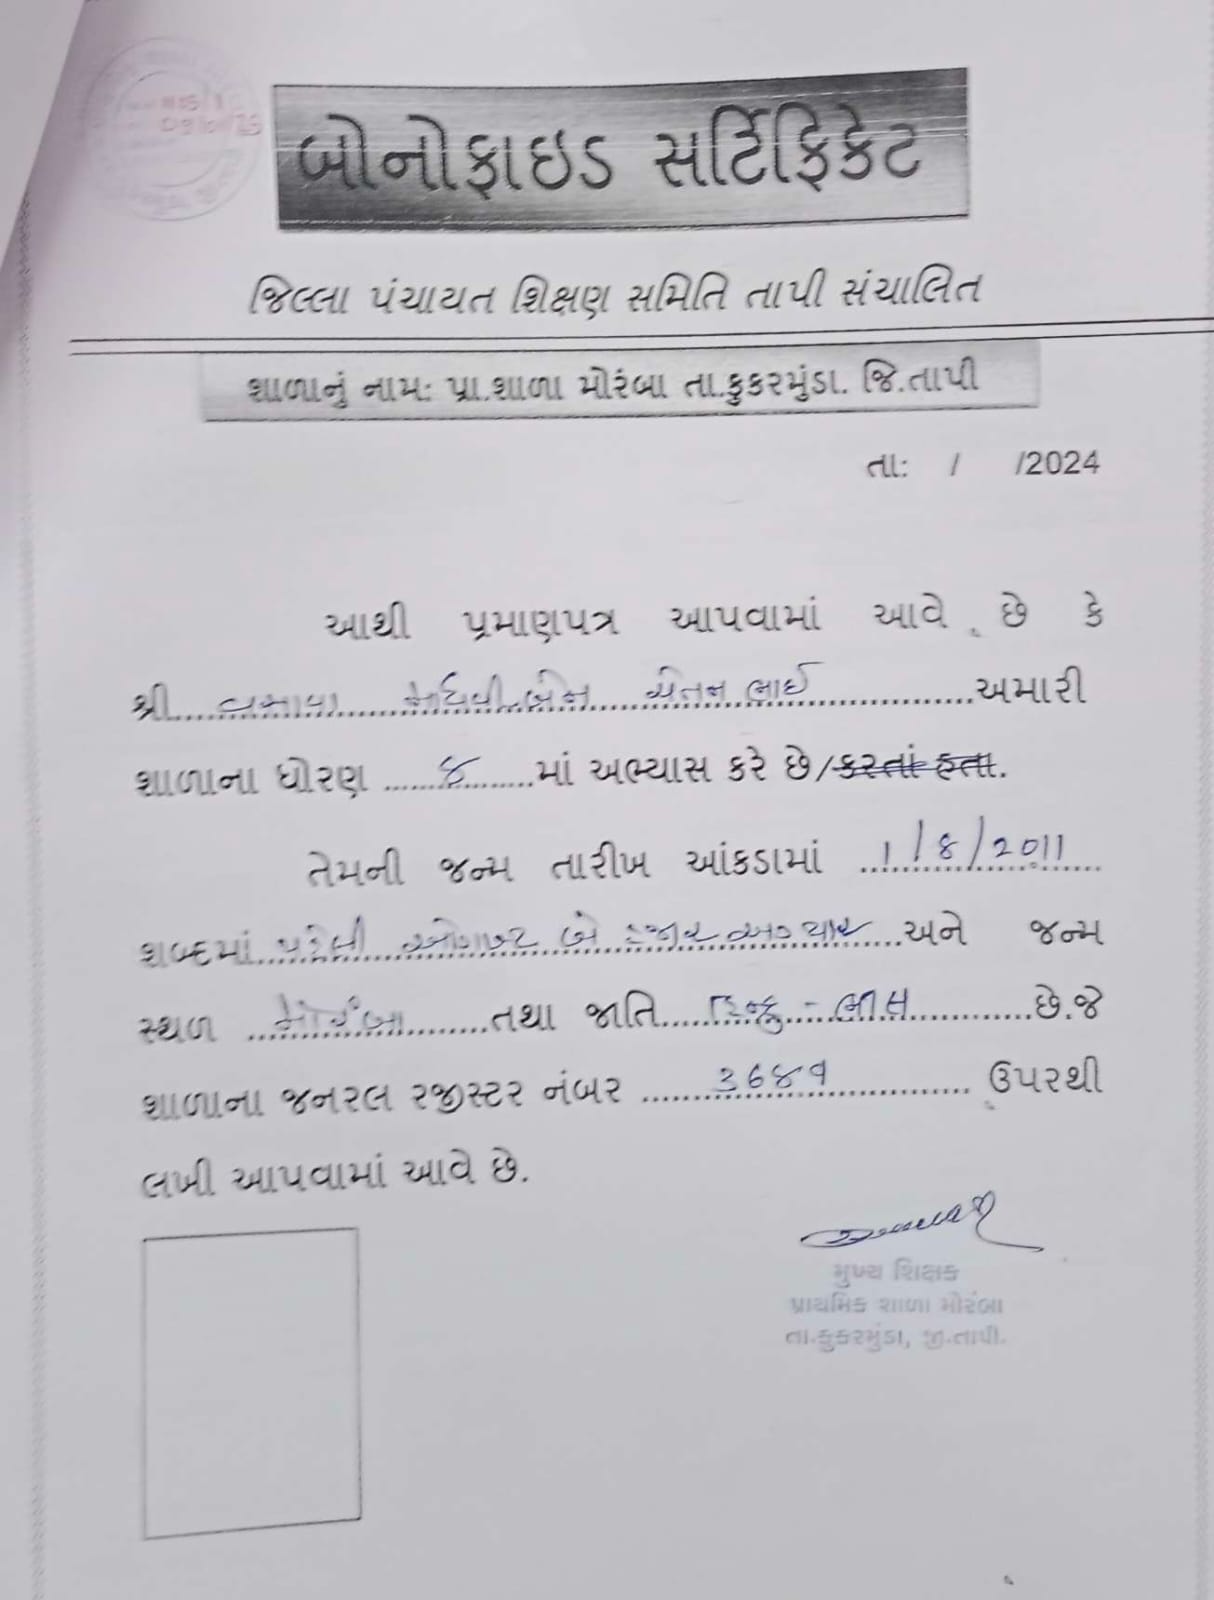 બોનોફાઇડ સર્ટિફિકેટ
જિલ્લા પંચાયત શિક્ષણ સમિતિ તાપી સંચાલિત
શાળાનું નામ: પ્રા.શાળા મોરંબા તા.કુકરમુંડા. જિ.તાપી
તા: / /2024
આથી પ્રમાણપત્ર આપવામાં આવે છે કે
શ્રી વસાવા માધવીબેન ચેતનભાઈ અમારી
શાળાના ધોરણ માં અભ્યાસ કરે છે/કરતાં હતા.
તેમની જન્મ તારીખ આંકડામાં 1/8/2011
શબ્દમાં પહેલી ઓગષ્ટ બે હજાર અગ્યાર અને જન્મ
સ્થળ મોરંબા તથા જાતિ હિન્દુ - ભીલ છે.જે
શાળાના જનરલ રજીસ્ટર નંબર ઉપરથી
લખી આપવામાં આવે છે.
મુખ્ય શિક્ષક
પ્રાથમિક શાળા મોરંબા
તા.કુકરમુંડા, જી.તાપી.